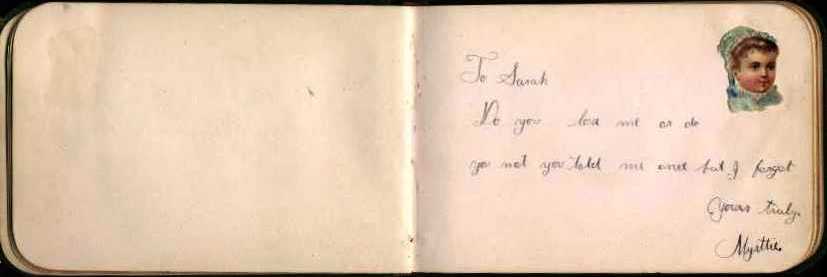 To Sarah
Do you love me or do
you not you told me once but I forgot
Yours truly.
Myrttie.